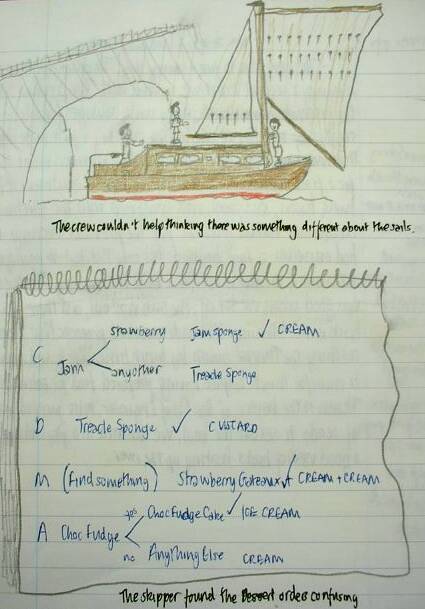 The crew couldn't help thinking there was something different about the sails.
strawberry Jam sponge ✓ CREAM
C Jam
anyother Treacle Sponge
D Treacle Sponge ✓ CUSTARD
M (find something) Strawberry Gateaux ✓ CREAM + CREAM
yes Choc Fudge Cake ✓ ICE CREAM
A Choc Fudge
no Anything Else CREAM
The skipper found the Dessert orders confusing